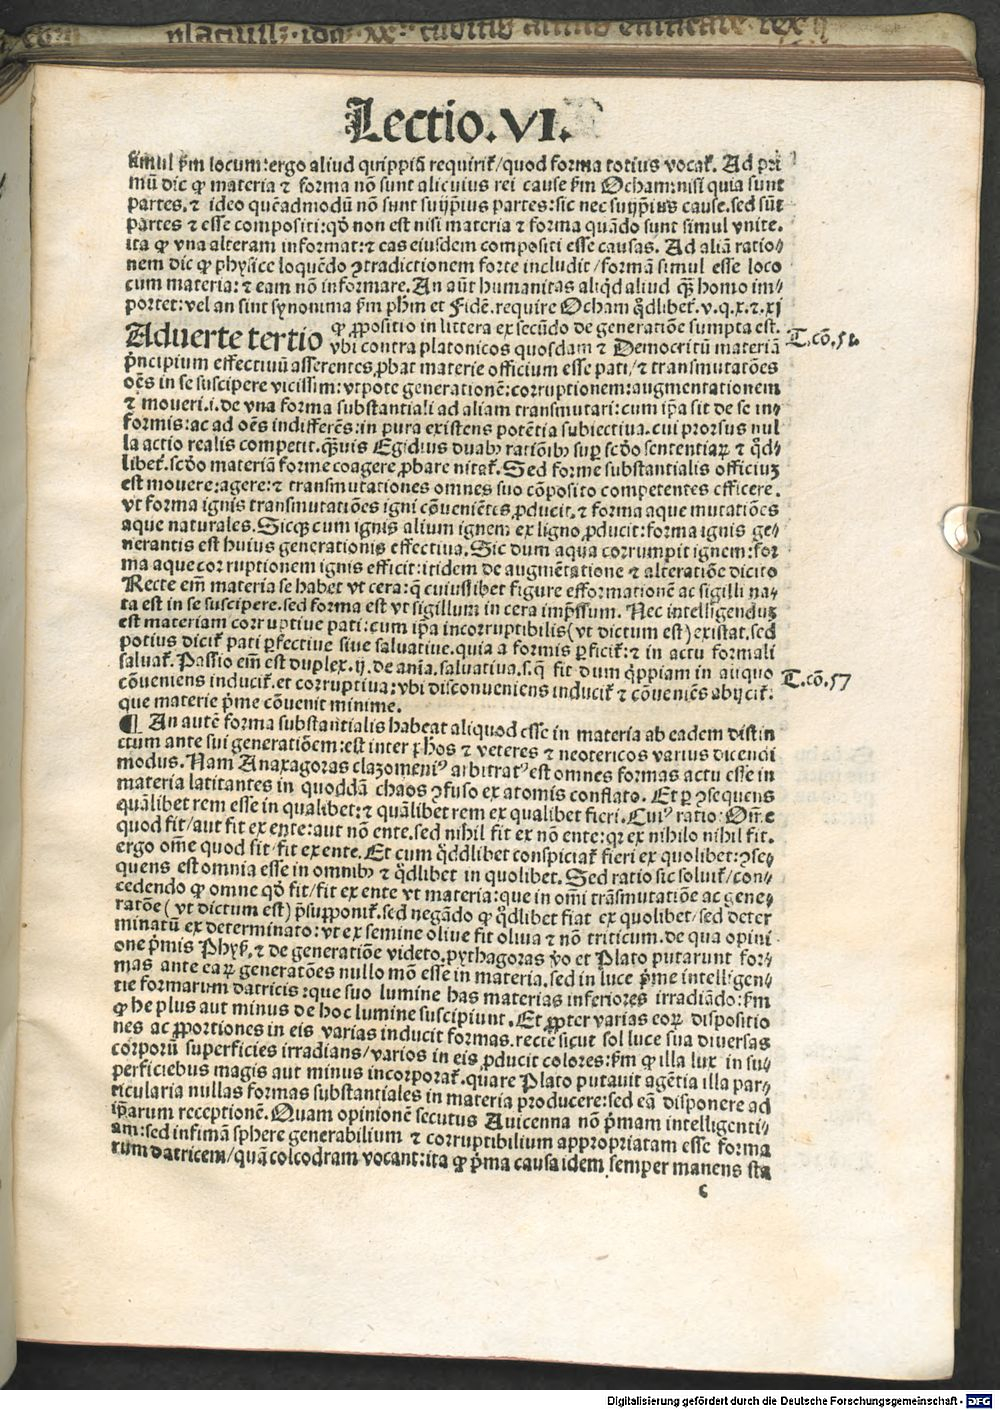 Lectio.VI.
simul ẜm locum:ergo aliud quippiã requiriť/quod forma totius vocať. Ad pri
mũ dic ꝙ materia ⁊ forma nõ sunt alicuius rei cause ẜm Ocham:nisi quia sunt
partes.⁊ ideo quẽadmodũ nõ sunt suijp̃ius partes:sic nec suijp̃ius cause.sed sũt
partes ⁊ esse compositi:qđ non est nisi materia ⁊ forma quãdo sunt simul vnite.
ita ꝙ vna alteram informat:⁊ eas eiusdem compositi esse causas. Ad aliã ratio⸗
nem dic ꝙ physice loquẽdo ꝯtradictionem forte includit/formã simul esse loco
cum materia:⁊ eam nõ informare. An aũt humanitas aliqđ aliud qꝫ homo im⸗
portet:vel an sint synonima ẜm pħm et Fidẽ.require Ocham q̃dlibeť.v.q.x.⁊.xj
Aduerte tertio ꝙ ꝓpositio in littera ex secũdo de generatiõe sumpta est.
vbi contra platonicos quosdam ⁊ Democritũ materiã
T.cõ.51.
p̃ncipium effectiuũ asserentes,ꝓbat materie officium esse pati/⁊ transmutatões
oẽs in se suscipere vicissim:vtpote generationẽ:corruptionem:augmentationem
⁊ moueri.i.de vna forma substantiali ad aliam transmutari:cum ip̃a sit de se in⸗
formis:ac ad oẽs indifferẽs:in pura existens potẽtia subiectiua.cui prorsus nul
la actio realis competit.qꝫuis Egidius duabꝰ ratiõibꝰ suꝑ scđo sententiaꝝ ⁊ q̃d⸗
libeť.scđo materiã forme coagere ꝓbare nitať. Sed forme substantialis officiuꝫ
est mouere:agere:⁊ transmutationes omnes suo cõposito competentes efficere.
vt forma ignis transmutatiões igni cõueniẽtes ꝓducit.⁊ forma aque mutatiões
aque naturales.Sicqꝫ cum ignis alium ignem ex ligno ꝓducit:forma ignis ge⸗
nerantis est huius generationis effectiua.Sic dum aqua corrumpit ignem:for
ma aque corruptionem ignis efficit:itidem de augmẽtatione ⁊ alteratiõe dicito
Recte em̃ materia se habet vt cera:q̃ cuiuslibet figure efformationẽ ac sigilli na⸗
ta est in se suscipere.sed forma est vt sigillum in cera imp̃ssum. Nec intelligenduꝫ
est materiam corruptiue pati:cum ip̃a incorruptibilis(vt dictum est)existat.sed
potius diciť pati ꝑfectiue siue saluatiue.quia a formis ꝑficiť:⁊ in actu formali
saluať.Passio em̃ est duplex.ij.de anĩa.saluatiua.s.q̃ fit dum q̃ppiam in aliquo
T.cõ.57
cõueniens induciť.et corruptiua:vbi disconueniens induciť ⁊ cõueniẽs abijciť:
que materie p̃me cõuenit minime.
¶ An autẽ forma substantialis habeat aliquod esse in materia ab eadem distin
ctum ante sui generatiõem:est inter pħos ⁊ veteres ⁊ neotericos varius dicendi
modus.Nam Anaxagoras clazomeniꝰ arbitratꝰ est omnes formas actu esse in
materia latitantes in quoddã chaos ꝯfuso ex atomis conflato. Et ꝑ ꝯsequens
quãlibet rem esse in qualibet:⁊ quãlibet rem ex qualibet fieri.Cuiꝰ ratio:Om̃e
quod fit/aut fit ex ente:aut nõ ente.sed nihil fit ex nõ ente:qꝛ ex nihilo nihil fit.
ergo om̃e quod fit/fit ex ente.Et cum q̃ddlibet conspiciať fieri ex quolibet:ꝯse⸗
quens est omnia esse in omnibꝰ ⁊ q̃dlibet in quolibet.Sed ratio sic soluiť/con⸗
cedendo ꝙ omne qđ fit/fit ex ente vt materia:que in om̃i trãsmutatiõe ac gene⸗
ratõe(vt dictum est)p̃supponiť.sed negãdo ꝙ q̃dlibet fiat ex quolibet/sed deter
minatũ ex determinato:vt ex semine oliue fit oliua ⁊ nõ triticum.de qua opini
one p̃mis Phyẜ.⁊ de generatiõe videto.pythagoras ṽo et Plato putarunt for⸗
mas ante eaꝝ generatões nullo mõ esse in materia.sed in luce p̃me intelligen⸗
tie formarum datricis:que suo lumine has materias inferiores irradiãdo:ẜm
ꝙ he plus aut minus de hoc lumine suscipiunt.Et ꝓpter varias eoꝝ dispositio
nes ac ꝓportiones in eis varias inducit formas.recte sicut sol luce sua diuersas
corporũ superficies irradians/varios in eis ꝓducit colores:ẜm ꝙ illa lux in su⸗
perficiebus magis aut minus incorporať.quare Plato putauit agẽtia illa par⸗
ticularia nullas formas substantiales in materia producere:sed eã disponere ad
ip̃arum receptionẽ.Quam opinionẽ secutus Auicenna nõ p̃mam intelligenti⸗
am:sed infimã sphere generabilium ⁊ corruptibilium appropriatam esse forma
rum datricem/quã colcodram vocant:ita ꝙ p̃ma causa idem semper manens sta
c
Digitalisierung gefördert durch die Deutsche Forschungsgemeinschaft - DFG